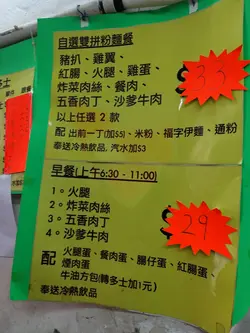 自選雙拼粉麵餐
豬扒、雞翼、
紅腸、火腿、雞蛋、
炸菜肉絲、餐肉、
五香肉丁、沙爹牛肉
$33
以上任選 2 款
配 出前一丁(加$5)、米粉、福字伊麵、通粉
奉送冷熱飲品, 汽水加$3
早餐(上午6:30 - 11:00)
1。火腿
2。炸菜肉絲
3。五香肉丁
4。沙爹牛肉
$29
配 火腿蛋、餐肉蛋、腸仔蛋、紅腸蛋、
煙肉蛋
牛油方包(轉多士加1元)
奉送冷熱飲品